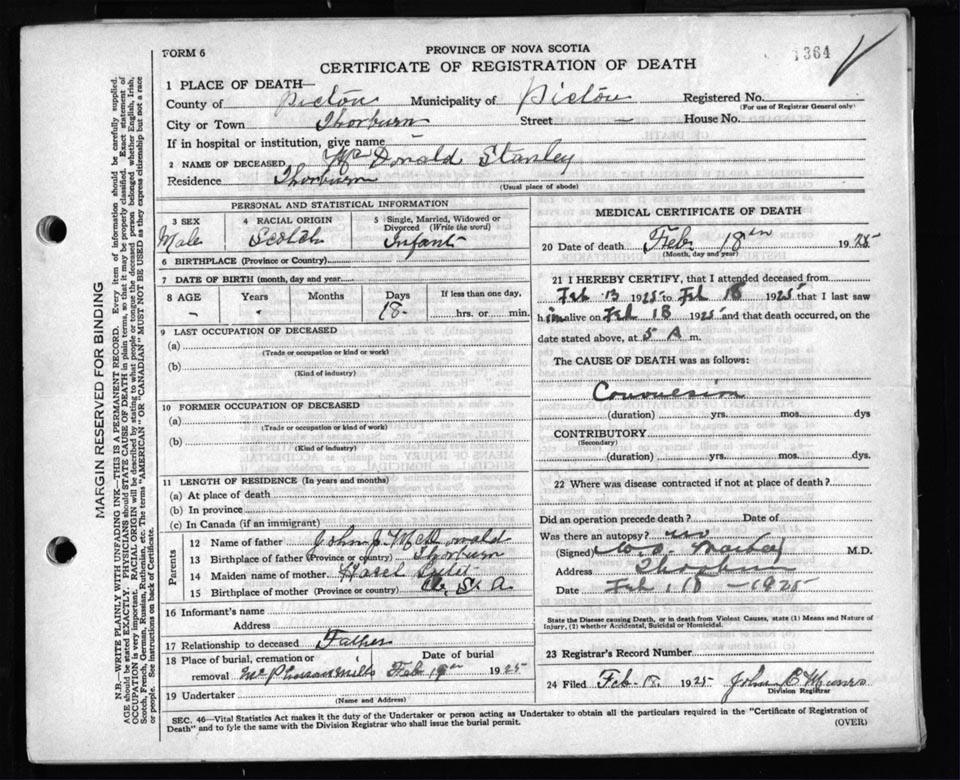 FORM 6
PROVINCE OF NOVA SCOTIA
1364
CERTIFICATE OF REGISTRATION OF DEATH
1 PLACE OF DEATH—
County of Pictou Municipality of Pictou Registered No.
(For use of Registrar General only)
City or Town Thorburn Street — House No.
If in hospital or institution, give name
2 NAME OF DECEASED McDonald Stanley
Residence Thorburn
(Usual place of abode)
PERSONAL AND STATISTICAL INFORMATION
3 SEX Male
4 RACIAL ORIGIN Scotch
5 Single, Married, Widowed or Divorced (Write the word) Infant
6 BIRTHPLACE (Province or Country)
7 DATE OF BIRTH (month, day and year)
8 AGE Years Months Days If less than one day,
- 18 hrs. or min.
9 LAST OCCUPATION OF DECEASED
(a)
(Trade or occupation or kind or work)
(b)
(Kind of industry)
10 FORMER OCCUPATION OF DECEASED
(a)
(Trade or occupation or kind of work)
(b)
(Kind of industry)
11 LENGTH OF RESIDENCE (In years and months)
(a) At place of death
(b) In province
(c) In Canada (if an immigrant)
Parents
12 Name of father John J. McDonald
13 Birthplace of father (Province or country) Thorburn
14 Maiden name of mother Hazel
15 Birthplace of mother (Province or country) U. S. A.
16 Informant's name
Address
17 Relationship to deceased Father
18 Place of burial, cremation or Date of burial
removal Mills Feb 19th 1925
19 Undertaker
(Name and Address)
MEDICAL CERTIFICATE OF DEATH
20 Date of death Feb 18th 1925
(Month, day and year)
21 I HEREBY CERTIFY, that I attended deceased from
Feb 13 1925 to Feb 18 1925 that I last saw
him alive on Feb 18 1925 and that death occurred, on the
date stated above, at 5 A m.
The CAUSE OF DEATH was as follows:
Convulsion
(duration) yrs. mos. dys
CONTRIBUTORY
(Secondary)
(duration) yrs. mos. dys.
22 Where was disease contracted if not at place of death?
Did an operation precede death? Date of
Was there an autopsy? no
(Signed) M.D.
Address Thorburn
Date Feb 18 - 1925
State the Disease causing Death, or in death from Violent Causes, state (1) Means and Nature of Injury, (2) whether Accidental, Suicidal or Homicidal.
23 Registrar's Record Number
24 Filed Feb 1925 John Munro
Division Registrar
SEC. 46—Vital Statistics Act makes it the duty of the Undertaker or person acting as Undertaker to obtain all the particulars required in the "Certificate of Registration of
Death" and to fyle the same with the Division Registrar who shall issue the burial permit.
(OVER)
MARGIN RESERVED FOR BINDING
N.B.—WRITE PLAINLY WITH UNFADING INK.—THIS IS A PERMANENT RECORD. Every item of information should be carefully supplied.
AGE should be stated EXACTLY. PHYSICIANS should STATE CAUSE OF DEATH in plain terms, so that it may be properly classified. Exact statement of
OCCUPATION is very important. RACIAL ORIGIN will be described by stating to what people or tongue the deceased person belonged whether English, Irish,
Scotch, French, German, Russian, Ruthenian, etc. The terms "AMERICAN" OR "CANADIAN" MUST NOT BE USED as they express citizenship but not a race
or people. See instructions on back of Certificate.